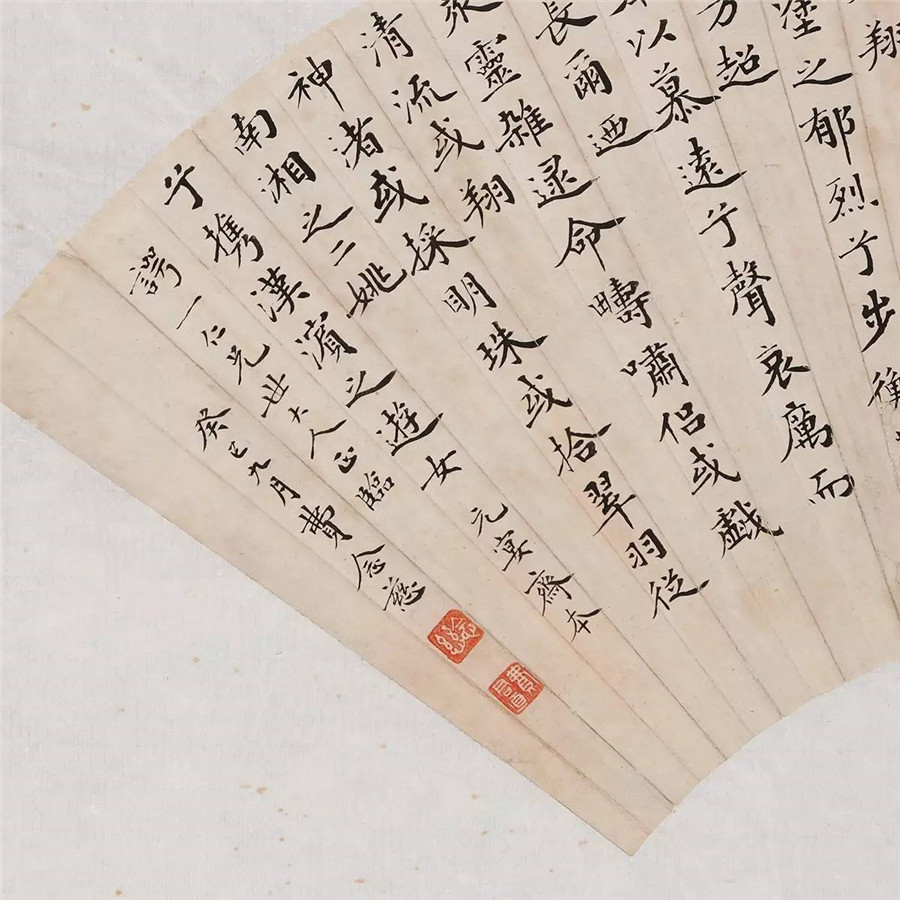 翔
塗之郁烈兮步蘅
超
以慕遠兮聲哀厲而
長爾迺
衆靈雜遝命疇嘯侶或戲
清流或翔
神渚或採明珠或拾翠羽從
南湘之二姚
兮携漢濱之遊女 元宴齋本
諤一仁兄世大人正臨
癸巳九月費念慈